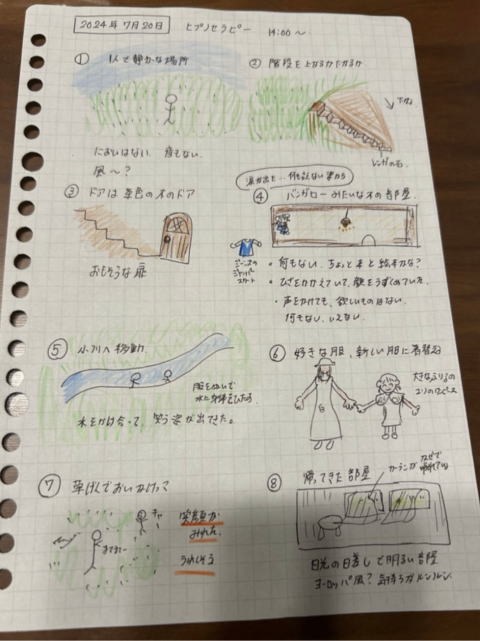 2024年7月20日 ヒプノセラピー 14:00〜
① 1人で静かな場所
においはない。音もない。
風〜?
② 階段を上がるか下がるか
下がる
レンガの石
③ ドアは茶色の木のドア
おもそうな扉
涙が出た…何も云えない事から
④ バンガローみたいな木の部屋
ジーンズの
ジャンパー
スカート
・何もない。ちょっと本と絵本かな?
・ひざをかかえていて、顔をうずめていた。
・声をかけても、欲しいものはない
何もない、いえない
⑤ 小川へ移動
服をぬいで
水に身体をひたす
水をかけ合って 笑う姿が出てきた。
⑥ 好きな服、新しい服に着替る
大きなふりるの
えりのワンピース
⑦ 草げんでおいかけっこ
キャー
まてまてー
笑顔が
みれた。
うれしそう
⑧ 帰ってきた部屋
カーテンが
かぜで
揺れている
日光の日差しで明るい部屋
ヨーロッパ風? 気持ちがルンルン。